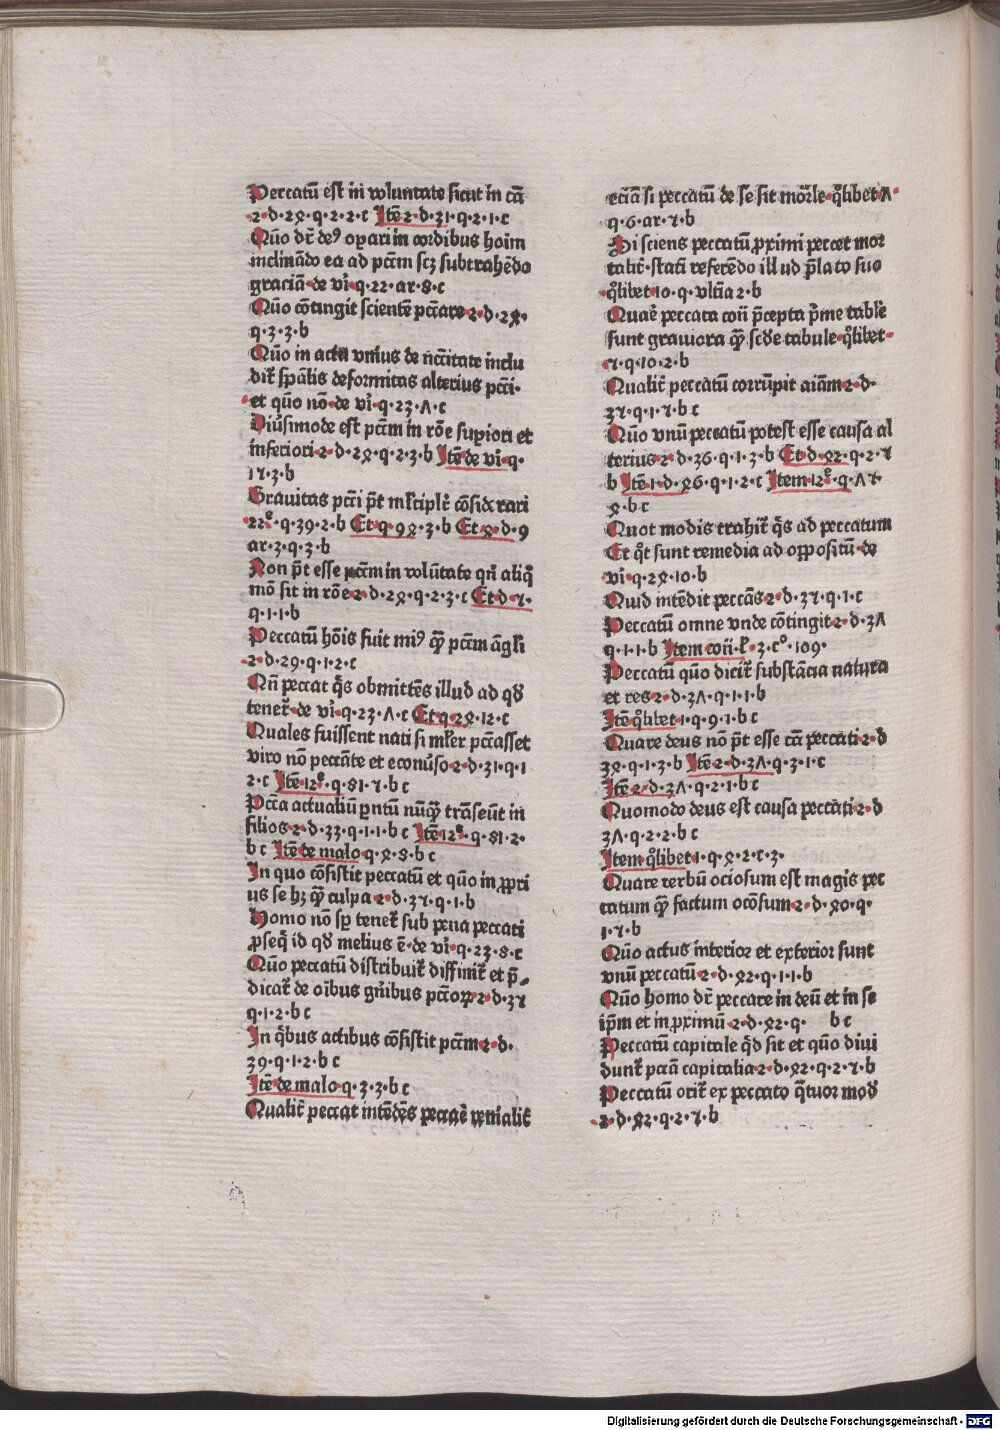 Peccatū est in voluntate sicut in cā
2·d·28·q·2·2·c Itē 2·d·31·q·2·1·c
Quō dr̄ deꝰ opari in cordibus hoim
inclinādo ea ad pctm̄ scꝫ subtrahēdo
graciā·de vi̇·q·22·ar·8·c
Quō cōtingit scientē pctāre 2·d·28·
q·3·3·b
Quō in actu vnius de nc̄citate inclu
dit̄ sp̄alis deformitas alterius pcti·
et quō nō·de vi̇·q·23·Λ·c
Diu̇simode est pctm̄ in rōe sup̄iori et
inferiori·2·d·28·q·2·3·b Itē de vi̇·q·
17·3·b
Grauitas pcti p̄t ml̄tiplr̄ cōsid̄rari
22ͤ·q·39·2·b Et q·98·3·b Et 8·d·9
ar·3·q·3·b
Non p̄t esse pctm̄ in volūtate qn̄ aliq̄
mō sit in rōe 2·d·28·q·2·3·c Et d·7·
q·1·1·b
Peccatū hōis fuit miꝰ qꝫ pctm̄ āgli
2·d·29·q·1·2·c
Qn̄ peccat q̄s obmittēs illud ad qd̄
tenet̄·de vi̇·q·23·Λ·c Et q·28·12·c
Quales fuissent nati si ml̄er pctāsset
viro nō peccāte et econu̇so 2·d·31·q·1
2·c Itē·12ͤ·q·81·7·b c
Pctā actualiū pn̄tū nūq̄ trāseūt in
filios 2·d·33·q·1·1·b c Itē 12ͤ·q·81·2·
b c Itē de malo q·8·8·b c
In quo cōsistit peccatū et quō in ꝓpri
us se hꝫ qꝫ culpa 2·d·37·q·1·b
Homo nō sp̄ tenet̄ sub pena peccati
ꝓseq̄ id qd̄ melius ē·de vi̇·q·23·8·c
Quō peccatū distribuit̄ diffinit̄ et p̄
dicat̄ de oībus gn̄ibus pctōꝝ 2·d·37
q·1·2·b c
In q̄bus actibus cōsistit pctm̄ 2·d·
39·q·1·2·b c
Itē de malo q·3·3·b c
Qualit̄ peccat intēdēs peccare venialit̄
eciā si peccatū de se sit mor̄le·q̄libet Λ·
q·6·ar·7·b
Si sciens peccatū ꝓximi peccet mor
talit̄·stati referēdo illud p̄lato suo
q̄libet 10·q·vltīa 2·b
Quare peccata con̄ p̄cepta p̄me tabl̄e
sunt grauiora qꝫ scd̄e tabule·q̄libet·
7·q·10·2·b
Qualit̄ peccatū corrūpit aīam 2·d·
37·q·1·7·b c
Quō vnū peccatū potest esse causa al
terius 2·d·36·q·1·3·b Et d·82·q·2·7
b Itē 1·d·86·q·1·2·c Item 12ͤ·q·Λ7·
8·b c
Quot modis trahit̄ q̄s ad peccatum
Et q̄t sunt remedia ad oppositū·de
vi̇·q·28·10·b
Quid intēdit peccās 2·d·37·q·1·c
Peccatū omne vnde cōtingit 2·d·3Λ
q·1·1·b Item con̄·l̄·3·cͦ·109·
Peccatū quō dicit̄ substācia natura
et res 2·d·3Λ·q·1·1·b
Itē q̄libet 1·q·9·1·b c
Quare deus nō p̄t esse cā peccati 2·d
38·q·1·3·b Itē 2·d·3Λ·q·3·1·c
Itē 2·d·3Λ·q·2·1·b c
Quomodo deus est causa peccati 2·d
3Λ·q·2·2·b c
Item q̄libet 1·q·8·2·c·3·
Quare verbū ociosum est magis pec
catum qꝫ factum ocōsum 2·d·80·q·
1·7·b
Quō actus interior et exterior sunt
vnū peccatū 2·d·82·q·1·1·b
Quō homo dr̄ peccare in deū et in se
ipm̄ et in ꝓximū 2·d·82·q· b c
Peccatū capitale qd̄ sit et quō diui
dunt̄ pctā capitalia 2·d·82·q·2·7·b
Peccatū orit̄ ex peccato q̄tuor mod̄
2·d·82·q·2·7·b
Digitalisierung gefördert durch die Deutsche Forschungsgemeinschaft - DFG